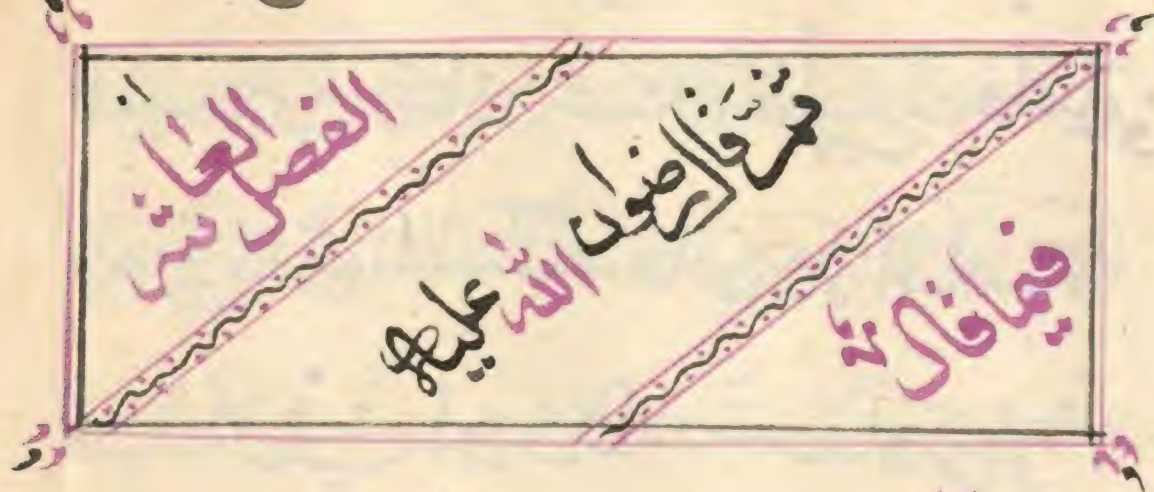 الفصل العاشر
ثم قال رضوان الله عليه
فيما قال